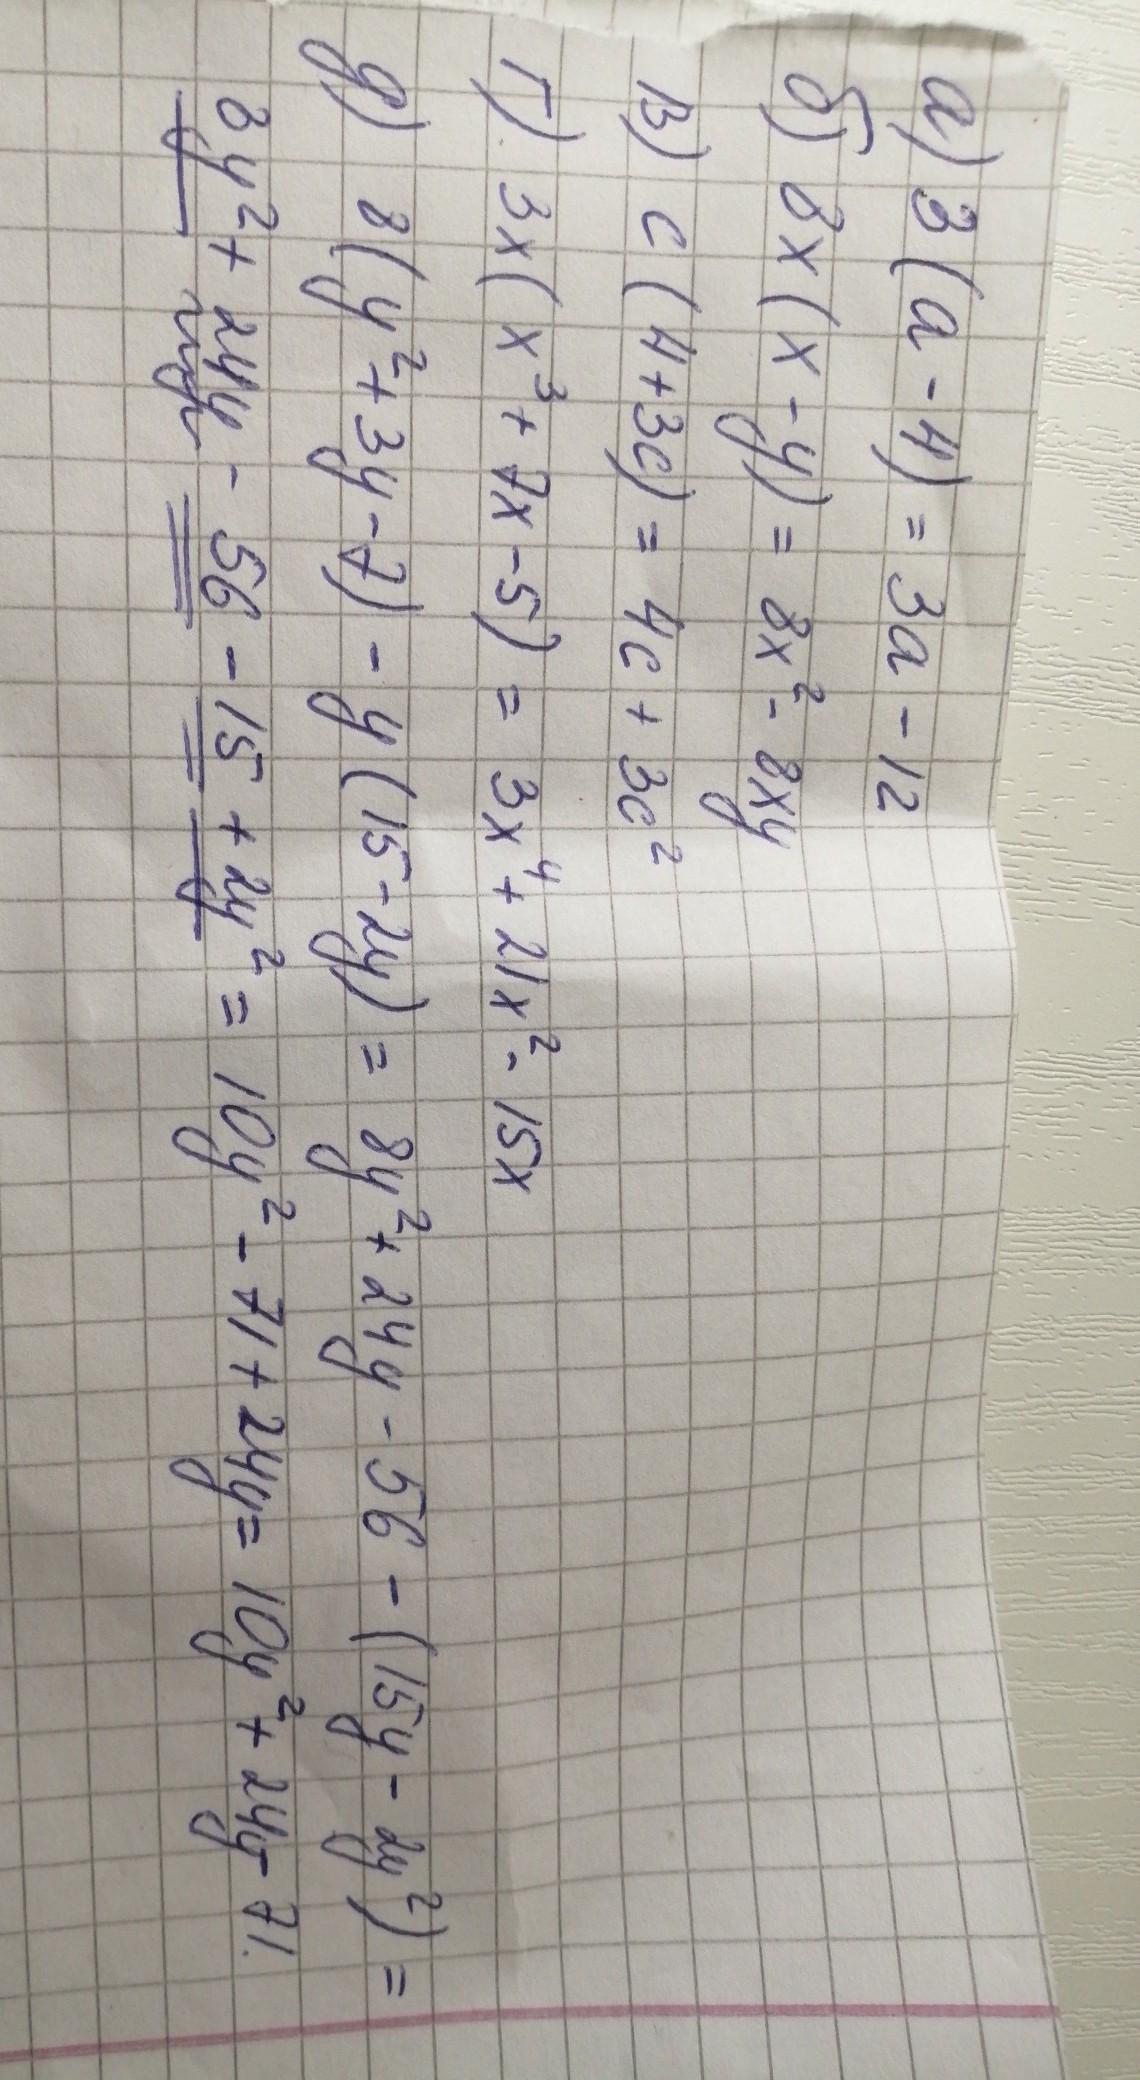 а) 3(a-4) = 3a - 12
б) 8x(x-y) = 8x² - 8xy
в) c(4+3c) = 4c + 3c²
г) 3x(x³ + 7x - 5) = 3x⁴ + 21x² - 15x
д) 8(y² + 3y - 7) - y(15 - 2y) = 8y² + 24y - 56 - (15y - 2y²) =
8y² + 24y - 56 - 15 + 2y² = 10y² - 71 + 24y = 10y² + 24y - 71.